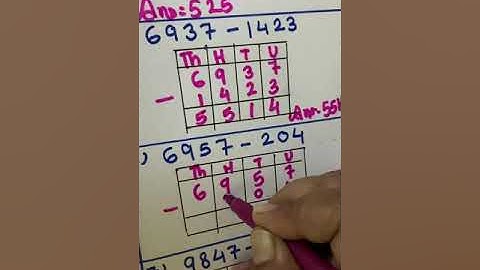 Ans: 525
6937 - 1423
Th H T U
6 9 3 7
- 1 4 2 3
5 5 1 4
6957 - 204
Th H T U
6 9 5 7
- 0
9847 -